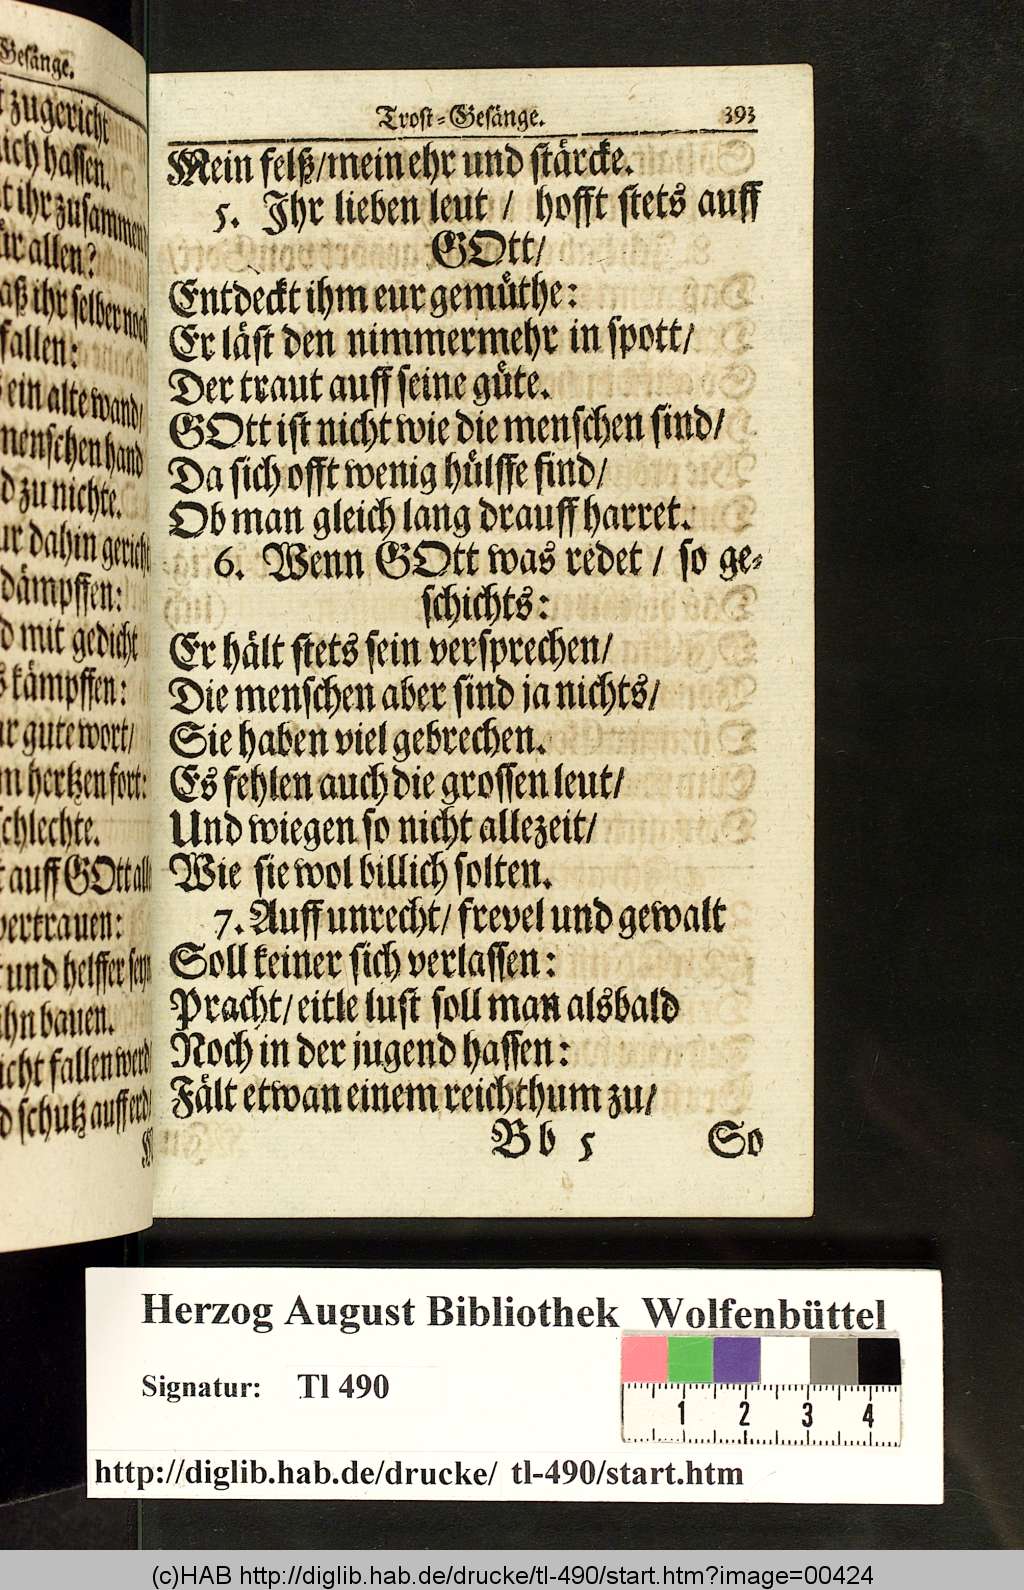 Gesänge.
zugericht
lich hassen.
ihr zusammen
allen?
ihr selber noch
fallen:
ein alte wand/
menschen hand
zu nichte.
dahin gericht
dämpffen:
mit gedicht
kämpffen:
gute wort/
hertzen fort:
schlechte.
auff GOtt
vertrauen:
und helffer seyn
bauen.
nicht fallen werd
schutz auff erd
Trost-Gesänge. 393
Mein felß/mein ehr und stärcke.
5. Ihr lieben leut / hofft stets auff
GOtt/
Entdeckt ihm eur gemüthe:
Er läst den nimmermehr in spott/
Der traut auff seine güte.
GOtt ist nicht wie die menschen sind/
Da sich offt wenig hülffe find/
Ob man gleich lang drauff harret.
6. Wenn GOtt was redet / so ge-
schichts:
Er hält stets sein versprechen/
Die menschen aber sind ja nichts/
Sie haben viel gebrechen.
Es fehlen auch die grossen leut/
Und wiegen so nicht allezeit/
Wie sie wol billich solten.
7. Auff unrecht/ frevel und gewalt
Soll keiner sich verlassen:
Pracht/ eitle lust soll man alsbald
Noch in der jugend hassen:
Fält etwan einem reichthum zu/
Bb 5 So
Herzog August Bibliothek Wolfenbüttel
Signatur: Tl 490
1 2 3 4
http://diglib.hab.de/drucke/ tl-490/start.htm
(c)HAB http://diglib.hab.de/drucke/tl-490/start.htm?image=00424